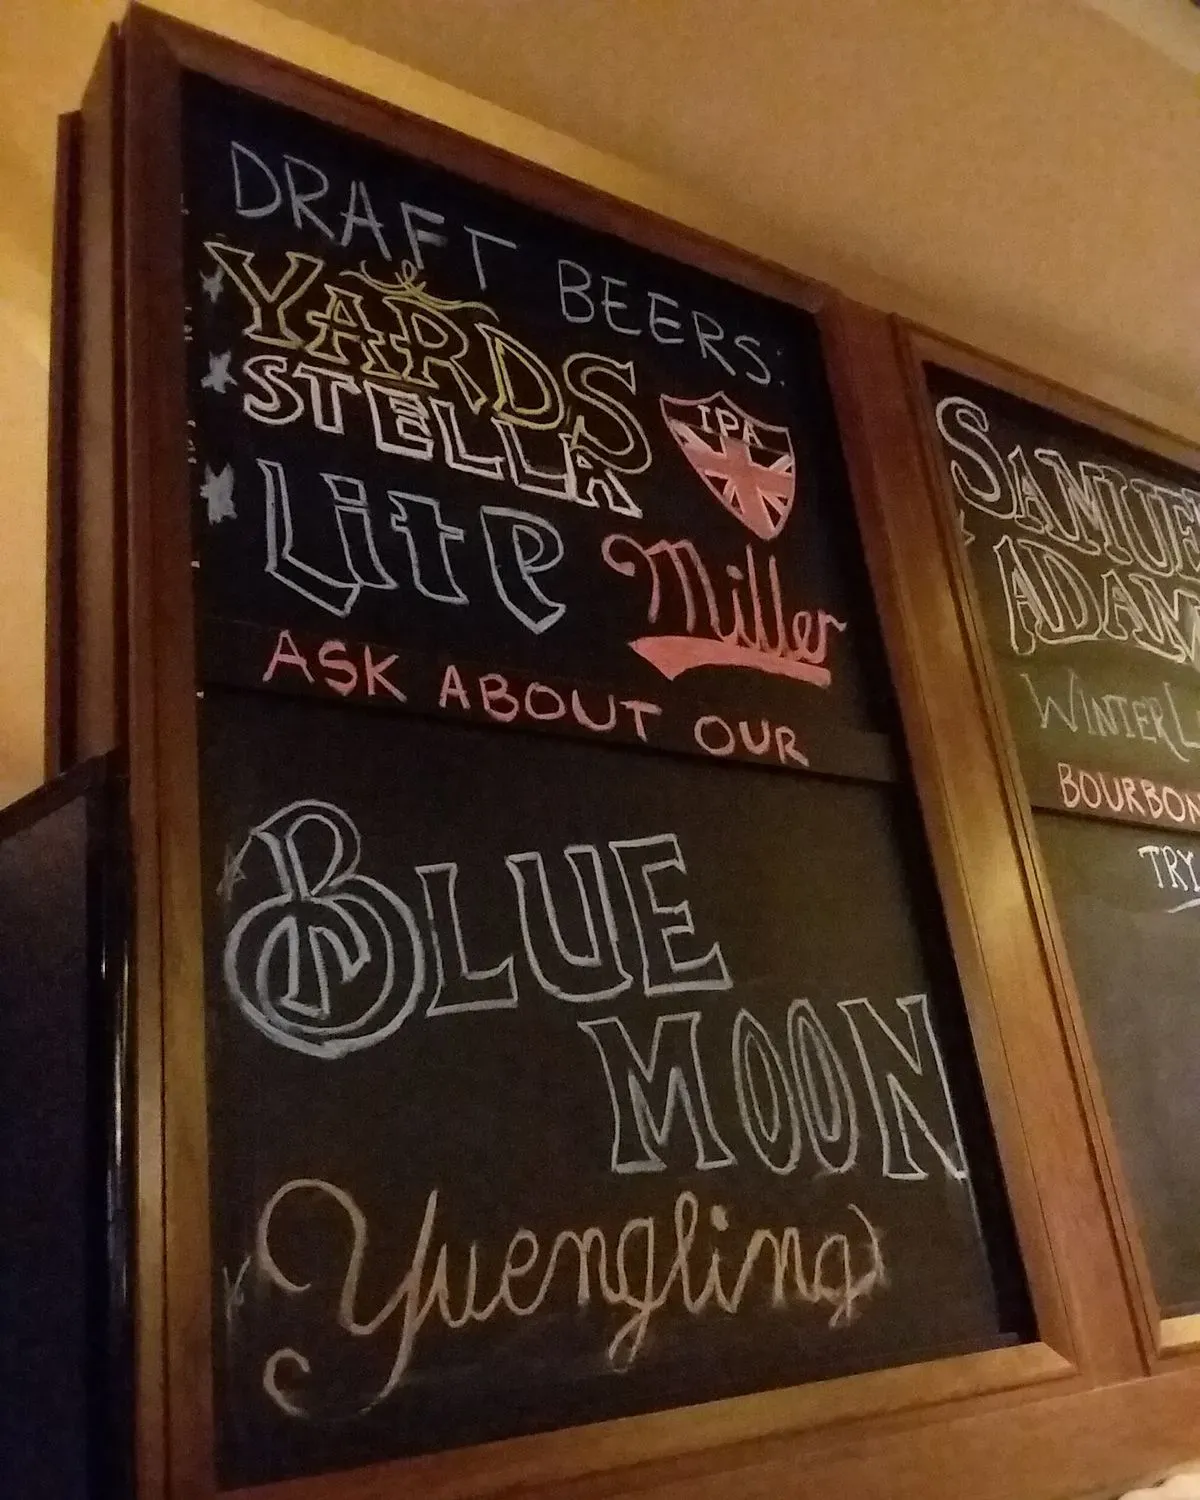 DRAFT BEERS:
YARDS
IPA
STELLA
Lite
Miller
ASK ABOUT OUR
BLUE
MOON
Yuengling
SAMUE
ADAM
WINTER L
BOURBON
TRY